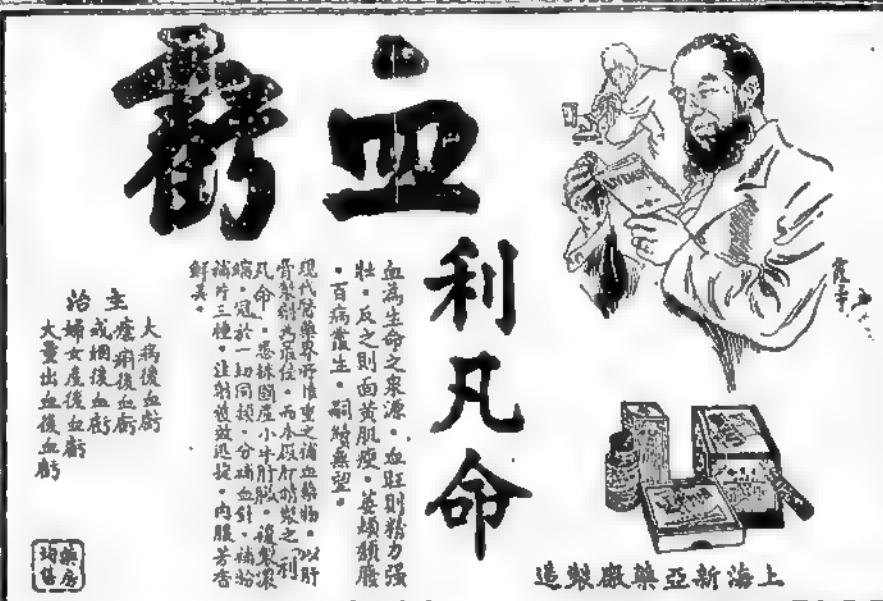 血虧
利凡命
血為生命之泉源・血旺則精力强
壯・反之則面黃肌瘦・萎頓頹廢
・百病叢生・嗣續無望・
現代醫藥界所推重之補血藥物・以肝
膏製劑為最佳・而本廠所精製之利
凡命・悉採國產小牛肝臟・複製濃
縮・冠於一切同類・分補血針・補粉
補片三種・注射彼效迅捷・內服芳香
鮮美・
主治
大病後血虧
瘧痢後血虧
戒烟後血虧
婦女產後血虧
大量出血後血虧
藥房
均售
LIVEMIN
上海新亞藥廠製造